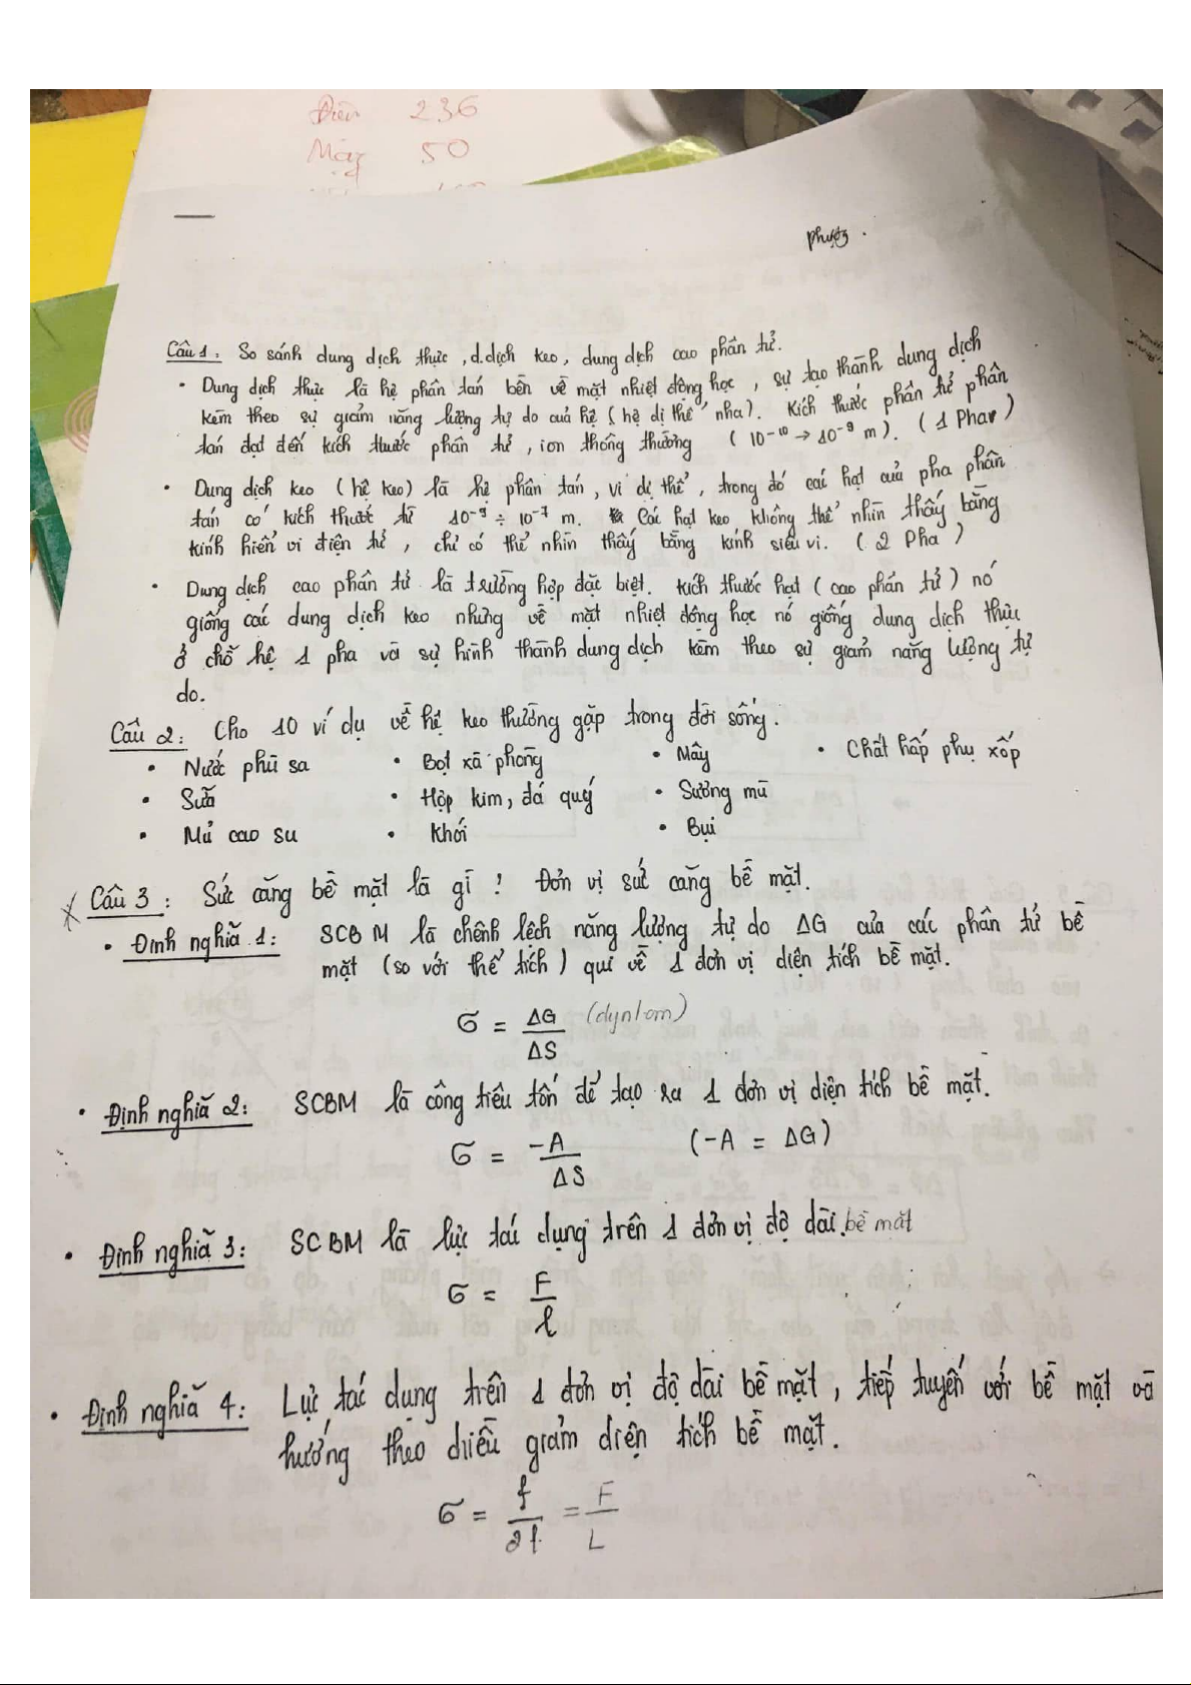 Điện 236
Máy 50
phượng.
Câu 1: So sánh dung dịch thực, d.dịch keo, dung dịch cao phân tử.
• Dung dịch thực là hệ phân tán bền về mặt nhiệt động học, sự tạo thành dung dịch
kèm theo sự giảm năng lượng tự do của hệ (hệ dị thể nha). Kích thước phân tử phân
tán đạt đến kích thước phân tử, ion thông thường (10⁻¹⁰ → 10⁻⁹ m). (1 Pha)
• Dung dịch keo (hệ keo) là hệ phân tán, vi dị thể, trong đó các hạt của pha phân
tán có kích thước từ 10⁻⁹ ÷ 10⁻⁷ m. Các hạt keo không thể nhìn thấy bằng
kính hiển vi điện tử, chỉ có thể nhìn thấy bằng kính siêu vi. (2 Pha)
• Dung dịch cao phân tử là trường hợp đặc biệt. Kích thước hạt (cao phân tử) nó
giống các dung dịch keo nhưng về mặt nhiệt động học nó giống dung dịch thực
ở chỗ hệ 1 pha và sự hình thành dung dịch kèm theo sự giảm năng lượng tự
do.
Câu 2: Cho 10 ví dụ về hệ keo thường gặp trong đời sống.
• Nước phù sa • Bọt xà phòng • Mây • Chất hấp phụ xốp
• Sữa • Hộp kim, đá quý • Sương mù
• Mủ cao su • Khói • Bụi
Câu 3: Sức căng bề mặt là gì? Đơn vị sức căng bề mặt.
• Định nghĩa 1: SCBM là chênh lệch năng lượng tự do ΔG của các phân tử bề
mặt (so với thể tích) qui về 1 đơn vị diện tích bề mặt.
σ = ΔG/ΔS (dyn/cm)
• Định nghĩa 2: SCBM là công tiêu tốn để tạo ra 1 đơn vị diện tích bề mặt.
σ = -A/ΔS (-A = ΔG)
• Định nghĩa 3: SCBM là lực tác dụng trên 1 đơn vị độ dài. bề mặt
σ = F/l
• Định nghĩa 4: Lực tác dụng trên 1 đơn vị độ dài bề mặt, tiếp tuyến với bề mặt và
hướng theo chiều giảm diện tích bề mặt.
σ = f/2l = F/L